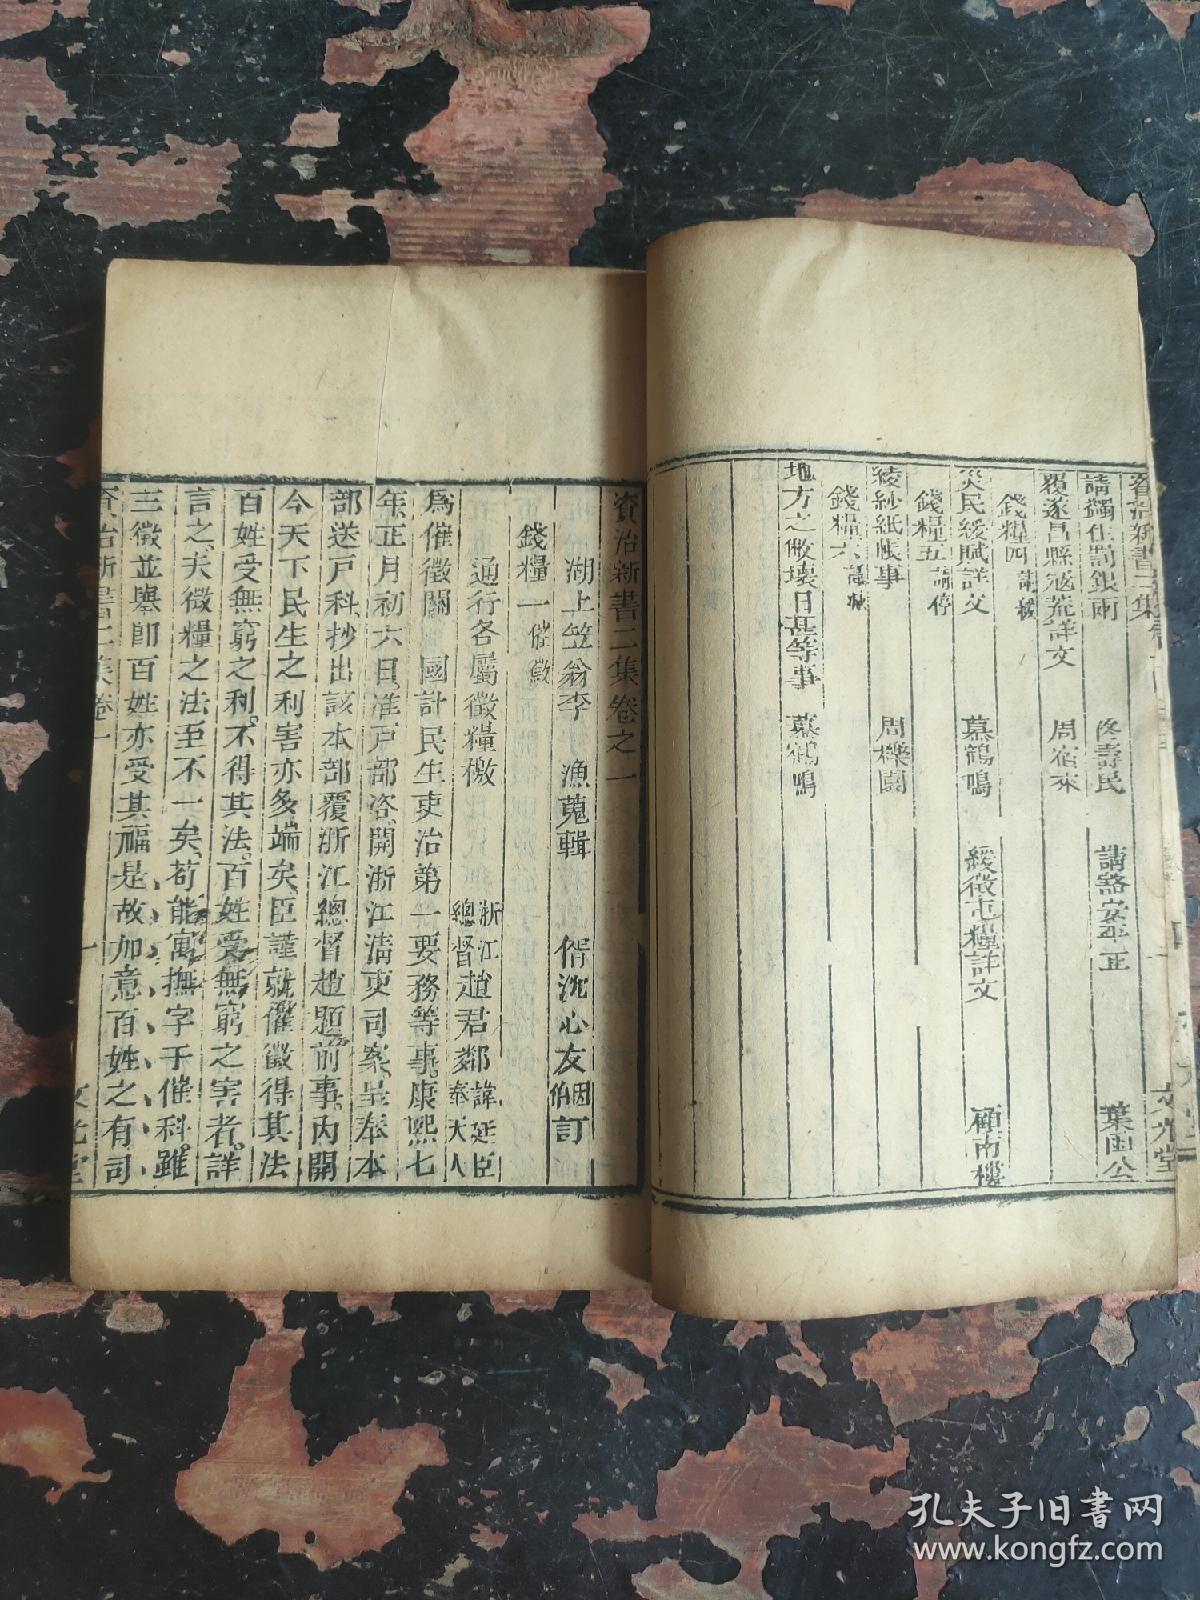 資治新書二集
請蠲仕罰銀兩 佟壽民 請豁 葉閩公
覆遂昌縣冦荒詳文 周宿來
錢糧四
災民緩賦詳文 慕鶴鳴 緩徵屯糧詳文 顧南樓
錢糧五 請停
綾紗紙帳事 周櫟園
錢糧六
地方之敝壞日甚等事 慕鶴鳴
文光堂
資治新書二集卷之一
湖上笠翁李漁蒐輯 婿沈心友因伯訂
錢糧一 催徵
通行各屬徵糧檄 浙江總督趙君鄰諱廷臣奉天人
爲催徵關國計民生吏治第一要務等事康熙七
年正月初六日准戶部咨開浙江清吏司案呈奉本
部送戶科抄出該本部覆浙江總督趙題前事內開
今天下民生之利害亦多端矣臣謹就催徵得其法
百姓受無窮之利不得其法百姓受無窮之害者詳
言之夫徵糧之法至不一矣苟能寓撫字于催科雖
三徵並舉卽百姓亦受其福是故加意百姓之有司
資治新書二集卷一 一 文光堂
孔夫子旧書网
www.kongfz.com